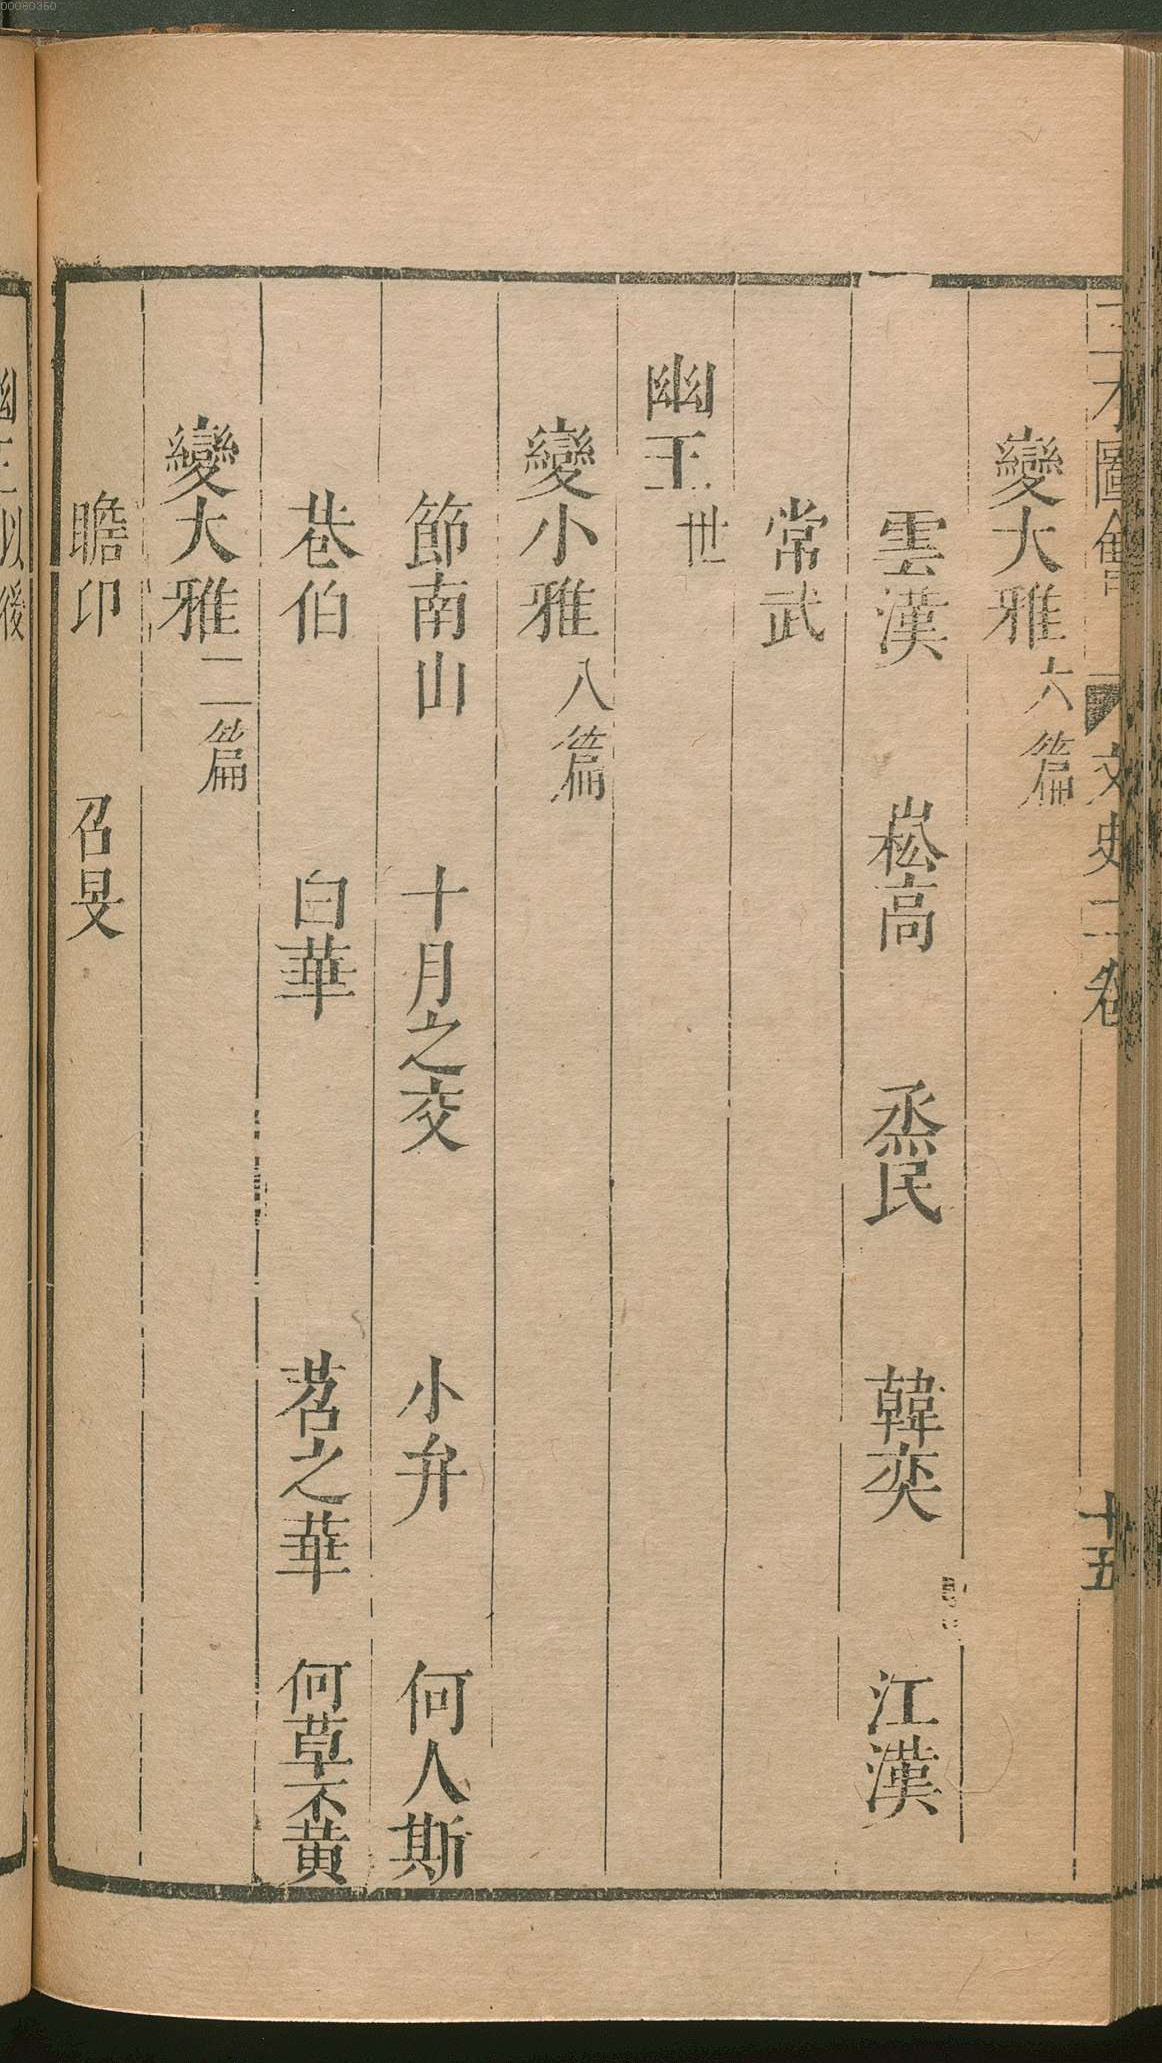 三才圖會 文史二卷 十五
變大雅六篇
雲漢 崧高 烝民 韓奕 江漢
常武
幽王世
變小雅八篇
節南山 十月之交 小弁 何人斯
巷伯 白華 苕之華 何草不黄
變大雅二篇
瞻卬 召旻
幽王以後
00080350